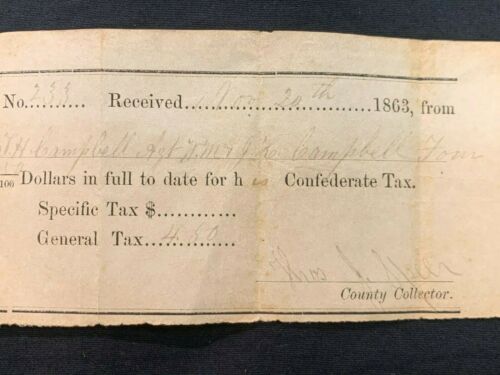 No. 233 Received Nov. 24th 1863, from
J H Campbell Agt Campbell Four
/100 Dollars in full to date for his Confederate Tax.
Specific Tax $
General Tax 4.50
Thos
County Collector.